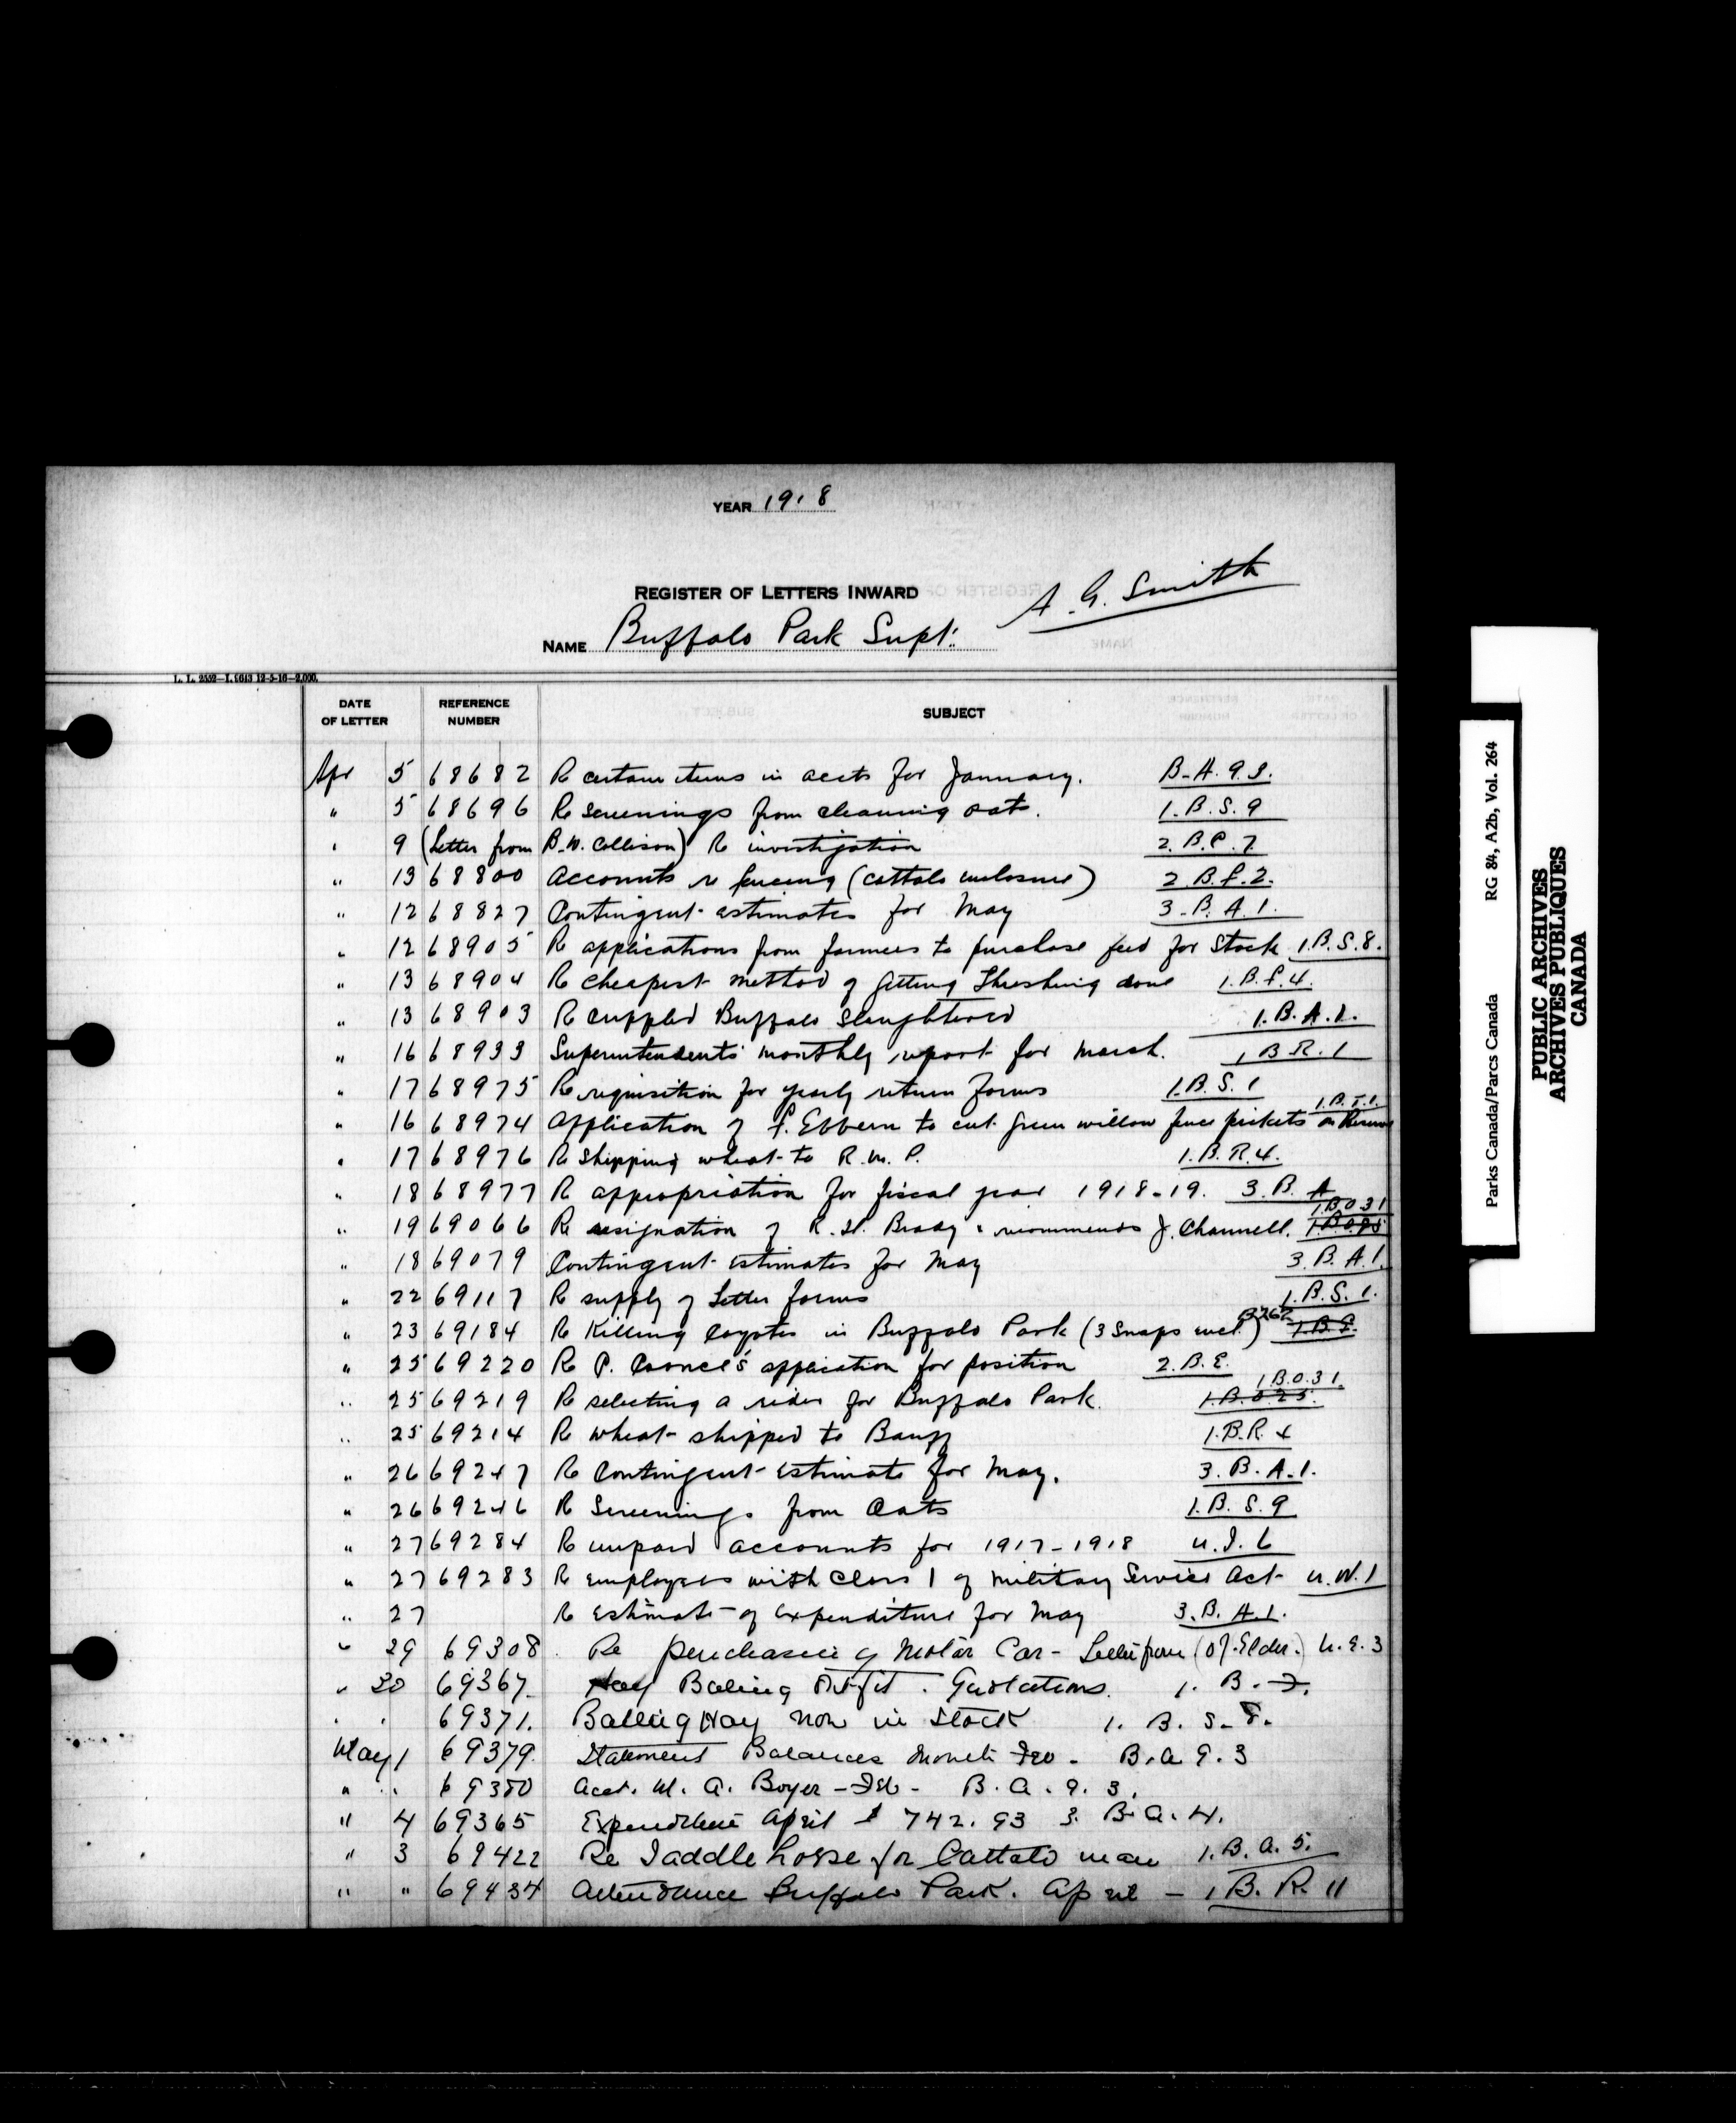 YEAR 1918
REGISTER OF LETTERS INWARD
A. G. Smith
NAME Buffalo Park Supt.
L. L. 2552—I. 9643 12-5-16—2,000.
DATE OF LETTER REFERENCE NUMBER SUBJECT
Apr 5 68682 Re certain items in accts for January. B-A.9.3.
" 5 68696 Re screenings from cleaning oats. 1.B.S.9
" 9 (Letter from B.W. Collison) Re investigation 2.B.C.7.
" 13 68800 Accounts re fencing (cattalo enclosure) 2.B.f.2.
" 12 68827 Contingent estimates for May 3.B.A.1.
" 12 68905 Re applications from farmers to purchase feed for Stock 1.B.S.8.
" 13 68904 Re cheapest method of getting Threshing done 1.B.f.4.
" 13 68903 Re crippled Buffalo slaughtered 1.B.A.1.
" 16 68933 Superintendents monthly report for March. 1 B R.1
" 17 68975 Re requisition for yearly return forms 1.B.S.1
" 16 68974 Application of f. Ebbern to cut green willow fence pickets on Reserve 1.B.T.1.
" 17 68976 Re Shipping wheat to R.M.P. 1.B.R.4.
" 18 68977 Re appropriation for fiscal year 1918-19. 3.B.A
" 19 69066 Re resignation of R.H. Brady & recommends J. Channell. 1.B.031
" 18 69079 Contingent estimates for May 3.B.A.1.
" 22 69117 Re supply of Letter forms 1.B.S.1.
" 23 69184 Re Killing Coyotes in Buffalo Park (3 Snaps incl.) B262 1.B.S.
" 25 69220 Re P. application for position 2.B.E.
" 25 69219 Re selecting a rider for Buffalo Park. 1.B.031. 1.B.025.
" 25 69214 Re wheat shipped to Banff 1.B.R.4
" 26 69247 Re Contingent estimate for May. 3.B.A.1.
" 26 69246 Re Screenings from Oats 1.B.S.9
" 27 69284 Re unpaid accounts for 1917-1918 U.I.6
" 27 69283 Re employees with Class 1 of Military Service Act U.W.1
" 27 Re Estimate of expenditure for May 3.B.A.1.
" 29 69308 Re purchasing of Motor Car - Letter from (O.J. Elder.) U.E.3
" 30 69367 Hay Baling Outfit. Quotations. 1.B.F.
" " 69371. Balling Hay now in Stock 1.B.S.8.
May 1 69379. Statement Balances Month Feb - B.A.9.3
" " 69380 Acct. M. A. Boyer - Feb - B.A.9.3.
" 4 69365 Expenditure April $742.93 3.B.A.4.
" 3 69422 Re Saddle horse for Cattalo man 1.B.A.5.
" " 69434 Attendance Buffalo Park. April - 1 B.R.11
Parks Canada/Parcs Canada RG 84, A2b, Vol. 264
PUBLIC ARCHIVES
ARCHIVES PUBLIQUES
CANADA